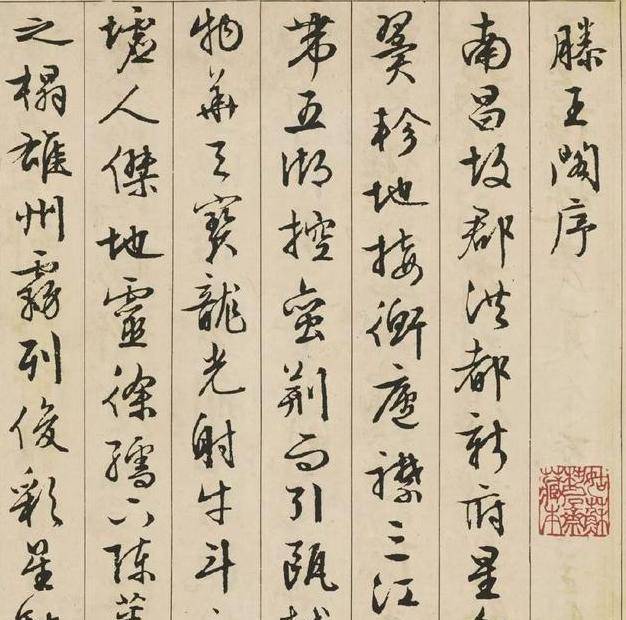 滕王閣序
南昌故郡洪都新府星
翼軫地接衡廬襟三江
帶五湖控蠻荊而引甌越
物華天寶龍光射牛斗
墟人傑地靈徐孺下陳蕃
之榻雄州霧列俊彩星馳